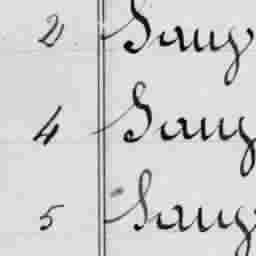 2 Sang
4 Sang
5 Sang